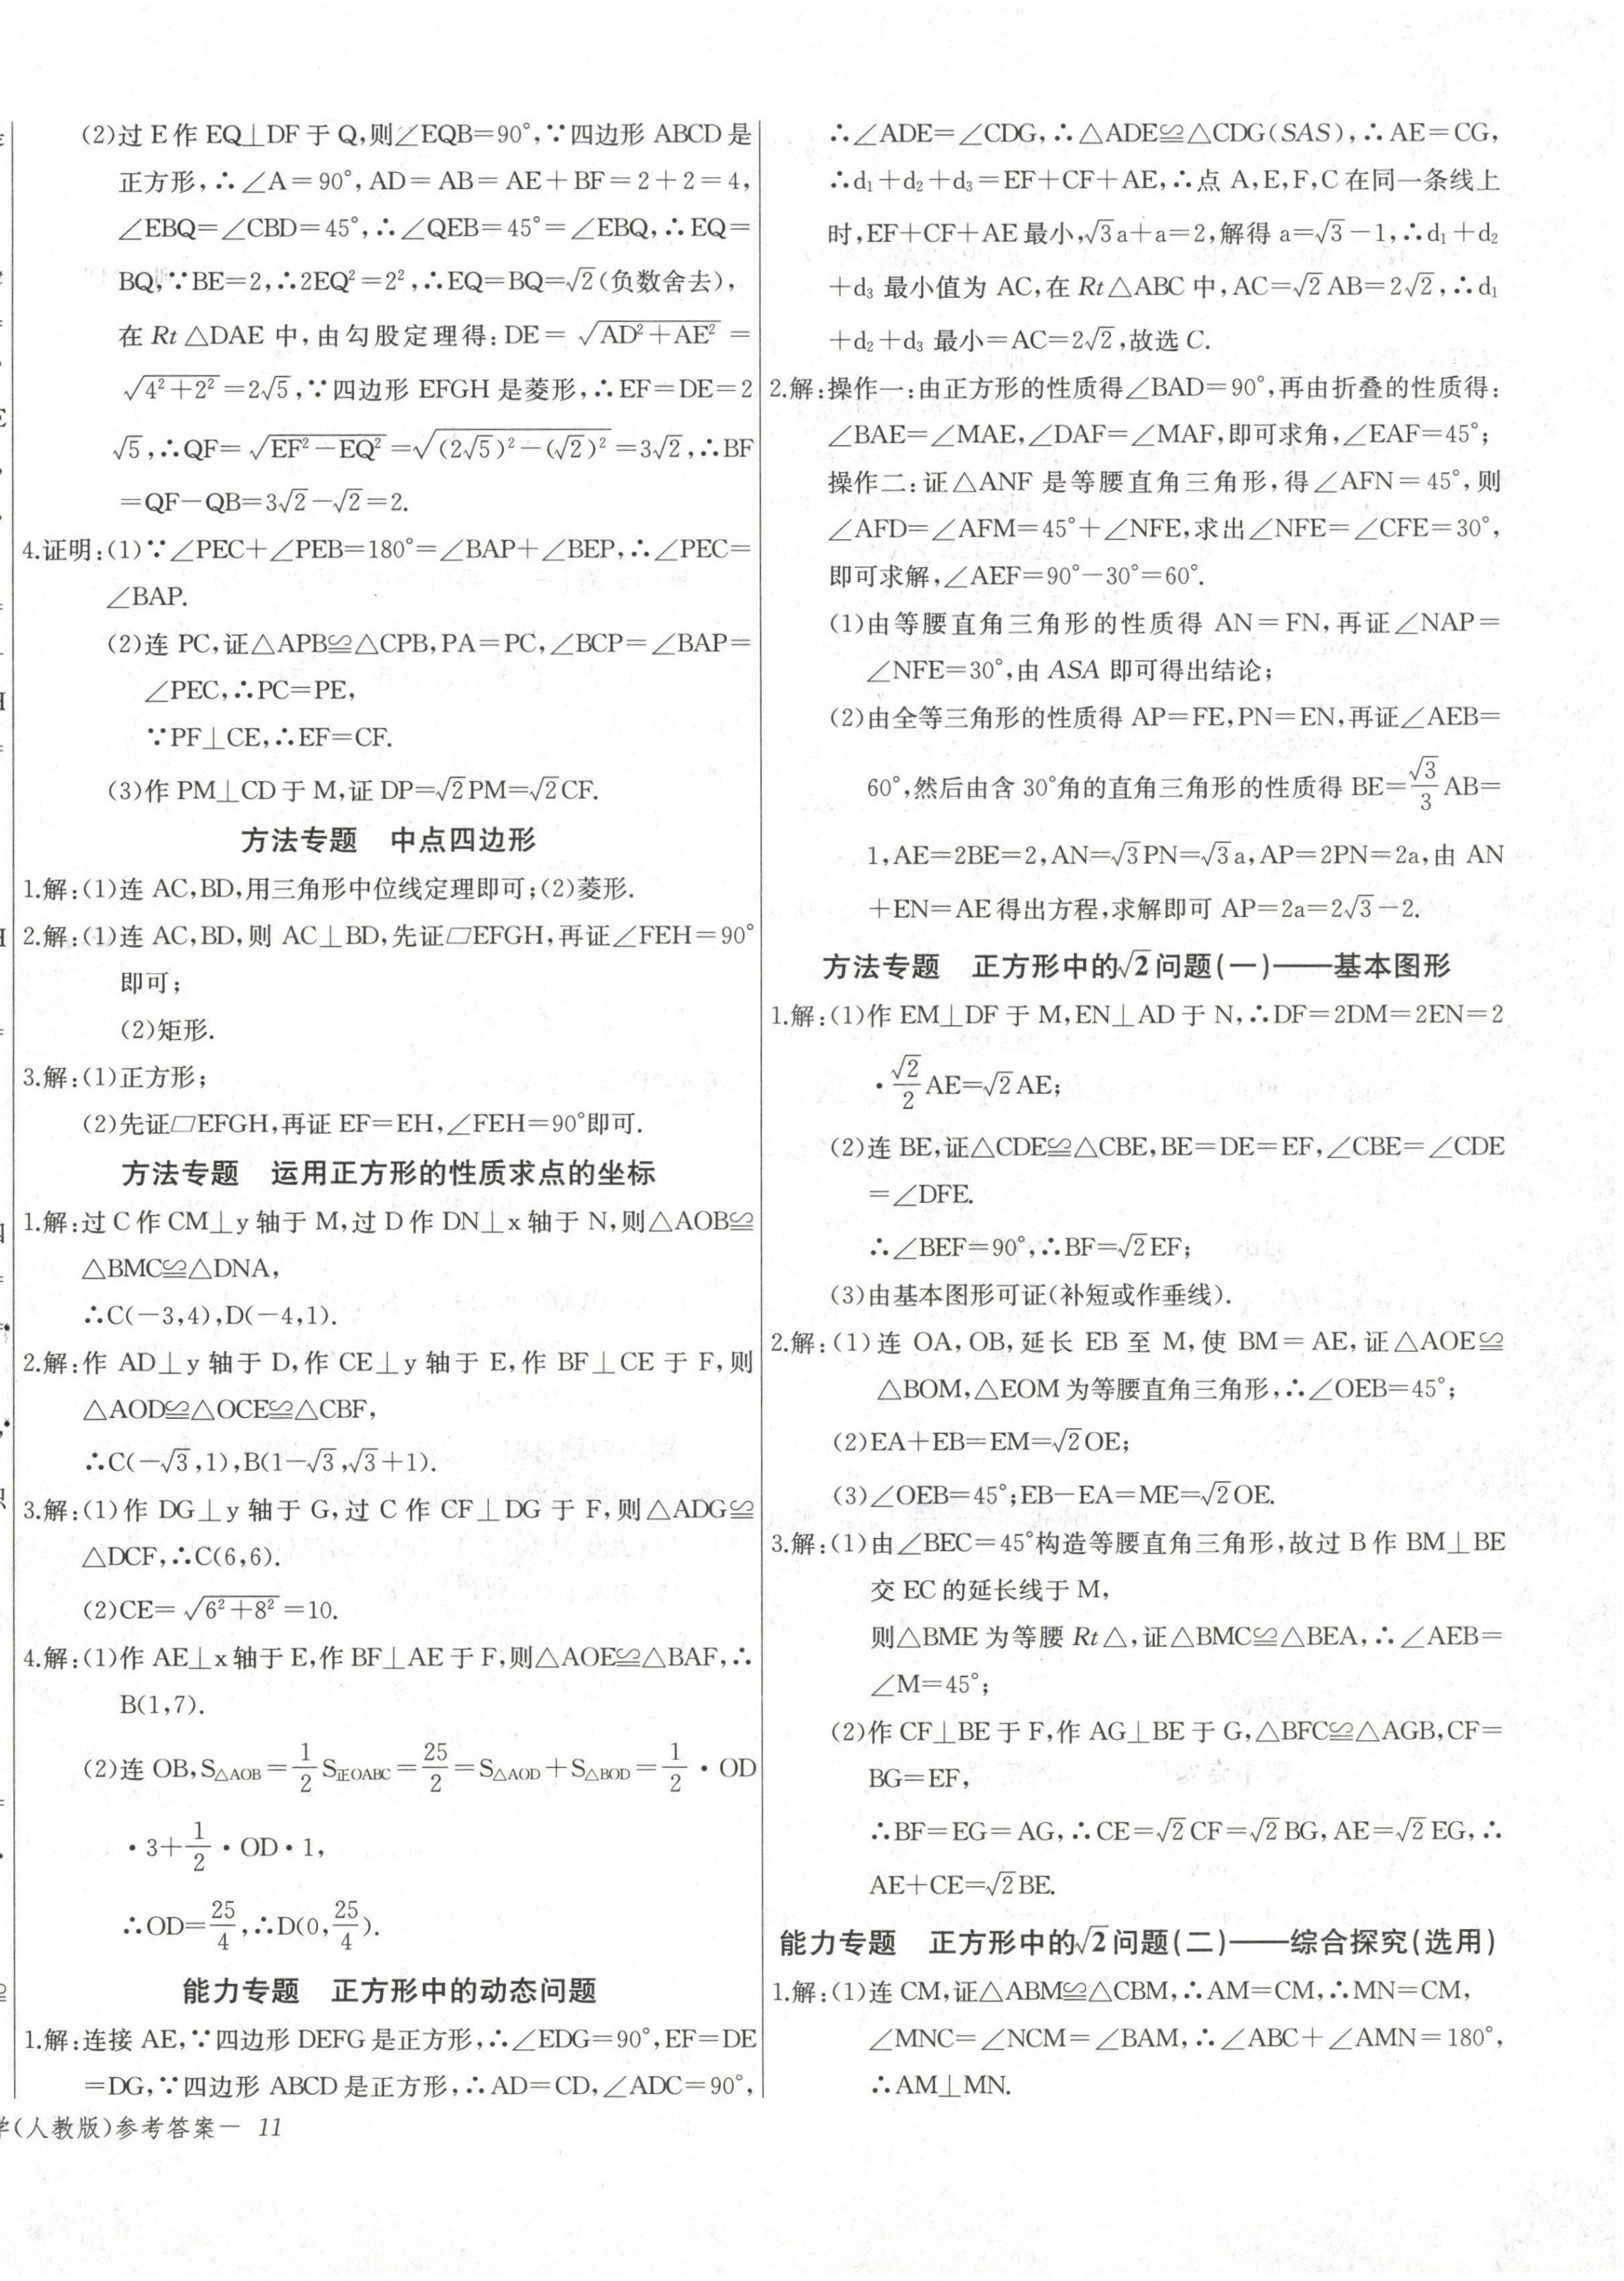 (2)过 E 作 EQ⊥DF 于 Q,则∠EQB=90°,∵四边形 ABCD 是
正方形,∴∠A=90°,AD=AB=AE+BF=2+2=4,
∠EBQ=∠CBD=45°,∴∠QEB=45°=∠EBQ,∴EQ=
BQ,∵BE=2,∴2EQ²=2²,∴EQ=BQ=√2(负数舍去),
在 Rt△DAE 中,由勾股定理得:DE=√(AD²+AE²)=
√(4²+2²)=2√5,∵四边形 EFGH 是菱形,∴EF=DE=2
√5,∴QF=√(EF²-EQ²)=√((2√5)²-(√2)²)=3√2,∴BF
=QF-QB=3√2-√2=2.
4.证明:(1)∵∠PEC+∠PEB=180°=∠BAP+∠BEP,∴∠PEC=
∠BAP.
(2)连 PC,证△APB≌△CPB,PA=PC,∠BCP=∠BAP=
∠PEC,∴PC=PE,
∵PF⊥CE,∴EF=CF.
(3)作 PM⊥CD 于 M,证 DP=√2PM=√2CF.
方法专题 中点四边形
1.解:(1)连 AC,BD,用三角形中位线定理即可;(2)菱形.
2.解:(1)连 AC,BD,则 AC⊥BD,先证▱EFGH,再证∠FEH=90°
即可;
(2)矩形.
3.解:(1)正方形;
(2)先证▱EFGH,再证 EF=EH,∠FEH=90°即可.
方法专题 运用正方形的性质求点的坐标
1.解:过 C 作 CM⊥y 轴于 M,过 D 作 DN⊥x 轴于 N,则△AOB≌
△BMC≌△DNA,
∴C(-3,4),D(-4,1).
2.解:作 AD⊥y 轴于 D,作 CE⊥y 轴于 E,作 BF⊥CE 于 F,则
△AOD≌△OCE≌△CBF,
∴C(-√3,1),B(1-√3,√3+1).
3.解:(1)作 DG⊥y 轴于 G,过 C 作 CF⊥DG 于 F,则△ADG≌
△DCF,∴C(6,6).
(2)CE=√(6²+8²)=10.
4.解:(1)作 AE⊥x 轴于 E,作 BF⊥AE 于 F,则△AOE≌△BAF,∴
B(1,7).
(2)连 OB,S△AOB=1/2 S正OABC=25/2=S△AOD+S△BOD=1/2·OD
·3+1/2·OD·1,
∴OD=25/4,∴D(0,25/4).
能力专题 正方形中的动态问题
1.解:连接 AE,∵四边形 DEFG 是正方形,∴∠EDG=90°,EF=DE
=DG,∵四边形 ABCD 是正方形,∴AD=CD,∠ADC=90°,
∴∠ADE=∠CDG,∴△ADE≌△CDG(SAS),∴AE=CG,
∴d₁+d₂+d₃=EF+CF+AE,∴点 A,E,F,C 在同一条线上
时,EF+CF+AE 最小,√3a+a=2,解得 a=√3-1,∴d₁+d₂
+d₃ 最小值为 AC,在 Rt△ABC 中,AC=√2AB=2√2,∴d₁
+d₂+d₃ 最小=AC=2√2,故选 C.
2.解:操作一:由正方形的性质得∠BAD=90°,再由折叠的性质得:
∠BAE=∠MAE,∠DAF=∠MAF,即可求角,∠EAF=45°;
操作二:证△ANF 是等腰直角三角形,得∠AFN=45°,则
∠AFD=∠AFM=45°+∠NFE,求出∠NFE=∠CFE=30°,
即可求解,∠AEF=90°-30°=60°.
(1)由等腰直角三角形的性质得 AN=FN,再证∠NAP=
∠NFE=30°,由 ASA 即可得出结论;
(2)由全等三角形的性质得 AP=FE,PN=EN,再证∠AEB=
60°,然后由含30°角的直角三角形的性质得 BE=√3/3 AB=
1,AE=2BE=2,AN=√3PN=√3a,AP=2PN=2a,由 AN
+EN=AE 得出方程,求解即可 AP=2a=2√3-2.
方法专题 正方形中的√2问题(一)——基本图形
1.解:(1)作 EM⊥DF 于 M,EN⊥AD 于 N,∴DF=2DM=2EN=2
·√2/2 AE=√2AE;
(2)连 BE,证△CDE≌△CBE,BE=DE=EF,∠CBE=∠CDE
=∠DFE.
∴∠BEF=90°,∴BF=√2EF;
(3)由基本图形可证(补短或作垂线).
2.解:(1)连 OA,OB,延长 EB 至 M,使 BM=AE,证△AOE≌
△BOM,△EOM 为等腰直角三角形,∴∠OEB=45°;
(2)EA+EB=EM=√2OE;
(3)∠OEB=45°;EB-EA=ME=√2OE.
3.解:(1)由∠BEC=45°构造等腰直角三角形,故过 B 作 BM⊥BE
交 EC 的延长线于 M,
则△BME 为等腰 Rt△,证△BMC≌△BEA,∴∠AEB=
∠M=45°;
(2)作 CF⊥BE 于 F,作 AG⊥BE 于 G,△BFC≌△AGB,CF=
BG=EF,
∴BF=EG=AG,∴CE=√2CF=√2BG,AE=√2EG,∴
AE+CE=√2BE.
能力专题 正方形中的√2问题(二)——综合探究(选用)
1.解:(1)连 CM,证△ABM≌△CBM,∴AM=CM,∴MN=CM,
∠MNC=∠NCM=∠BAM,∴∠ABC+∠AMN=180°,
∴AM⊥MN.
学(人教版)参考答案— 11